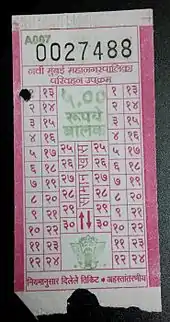 A007
0027488
नवी मुंबई महानगरपालिका
परिवहन उपक्रम
५.००
रूपये
बालक
१ १३ १ १३
२ १४ २ १४
३ १५ ३ १५
४ १६ ४ १६
५ १७ २५ २५ ५ १७
६ १८ २६ २६ ६ १८
७ १९ २७ सामान २७ ७ १९
८ २० २८ २८ ८ २०
९ २१ २९ २९ ९ २१
१० २२ ३० ३० १० २२
११ २३ ११ २३
१२ २४ १२ २४
नियमानुसार दिलेले तिकिट • अहस्तांतरणीय